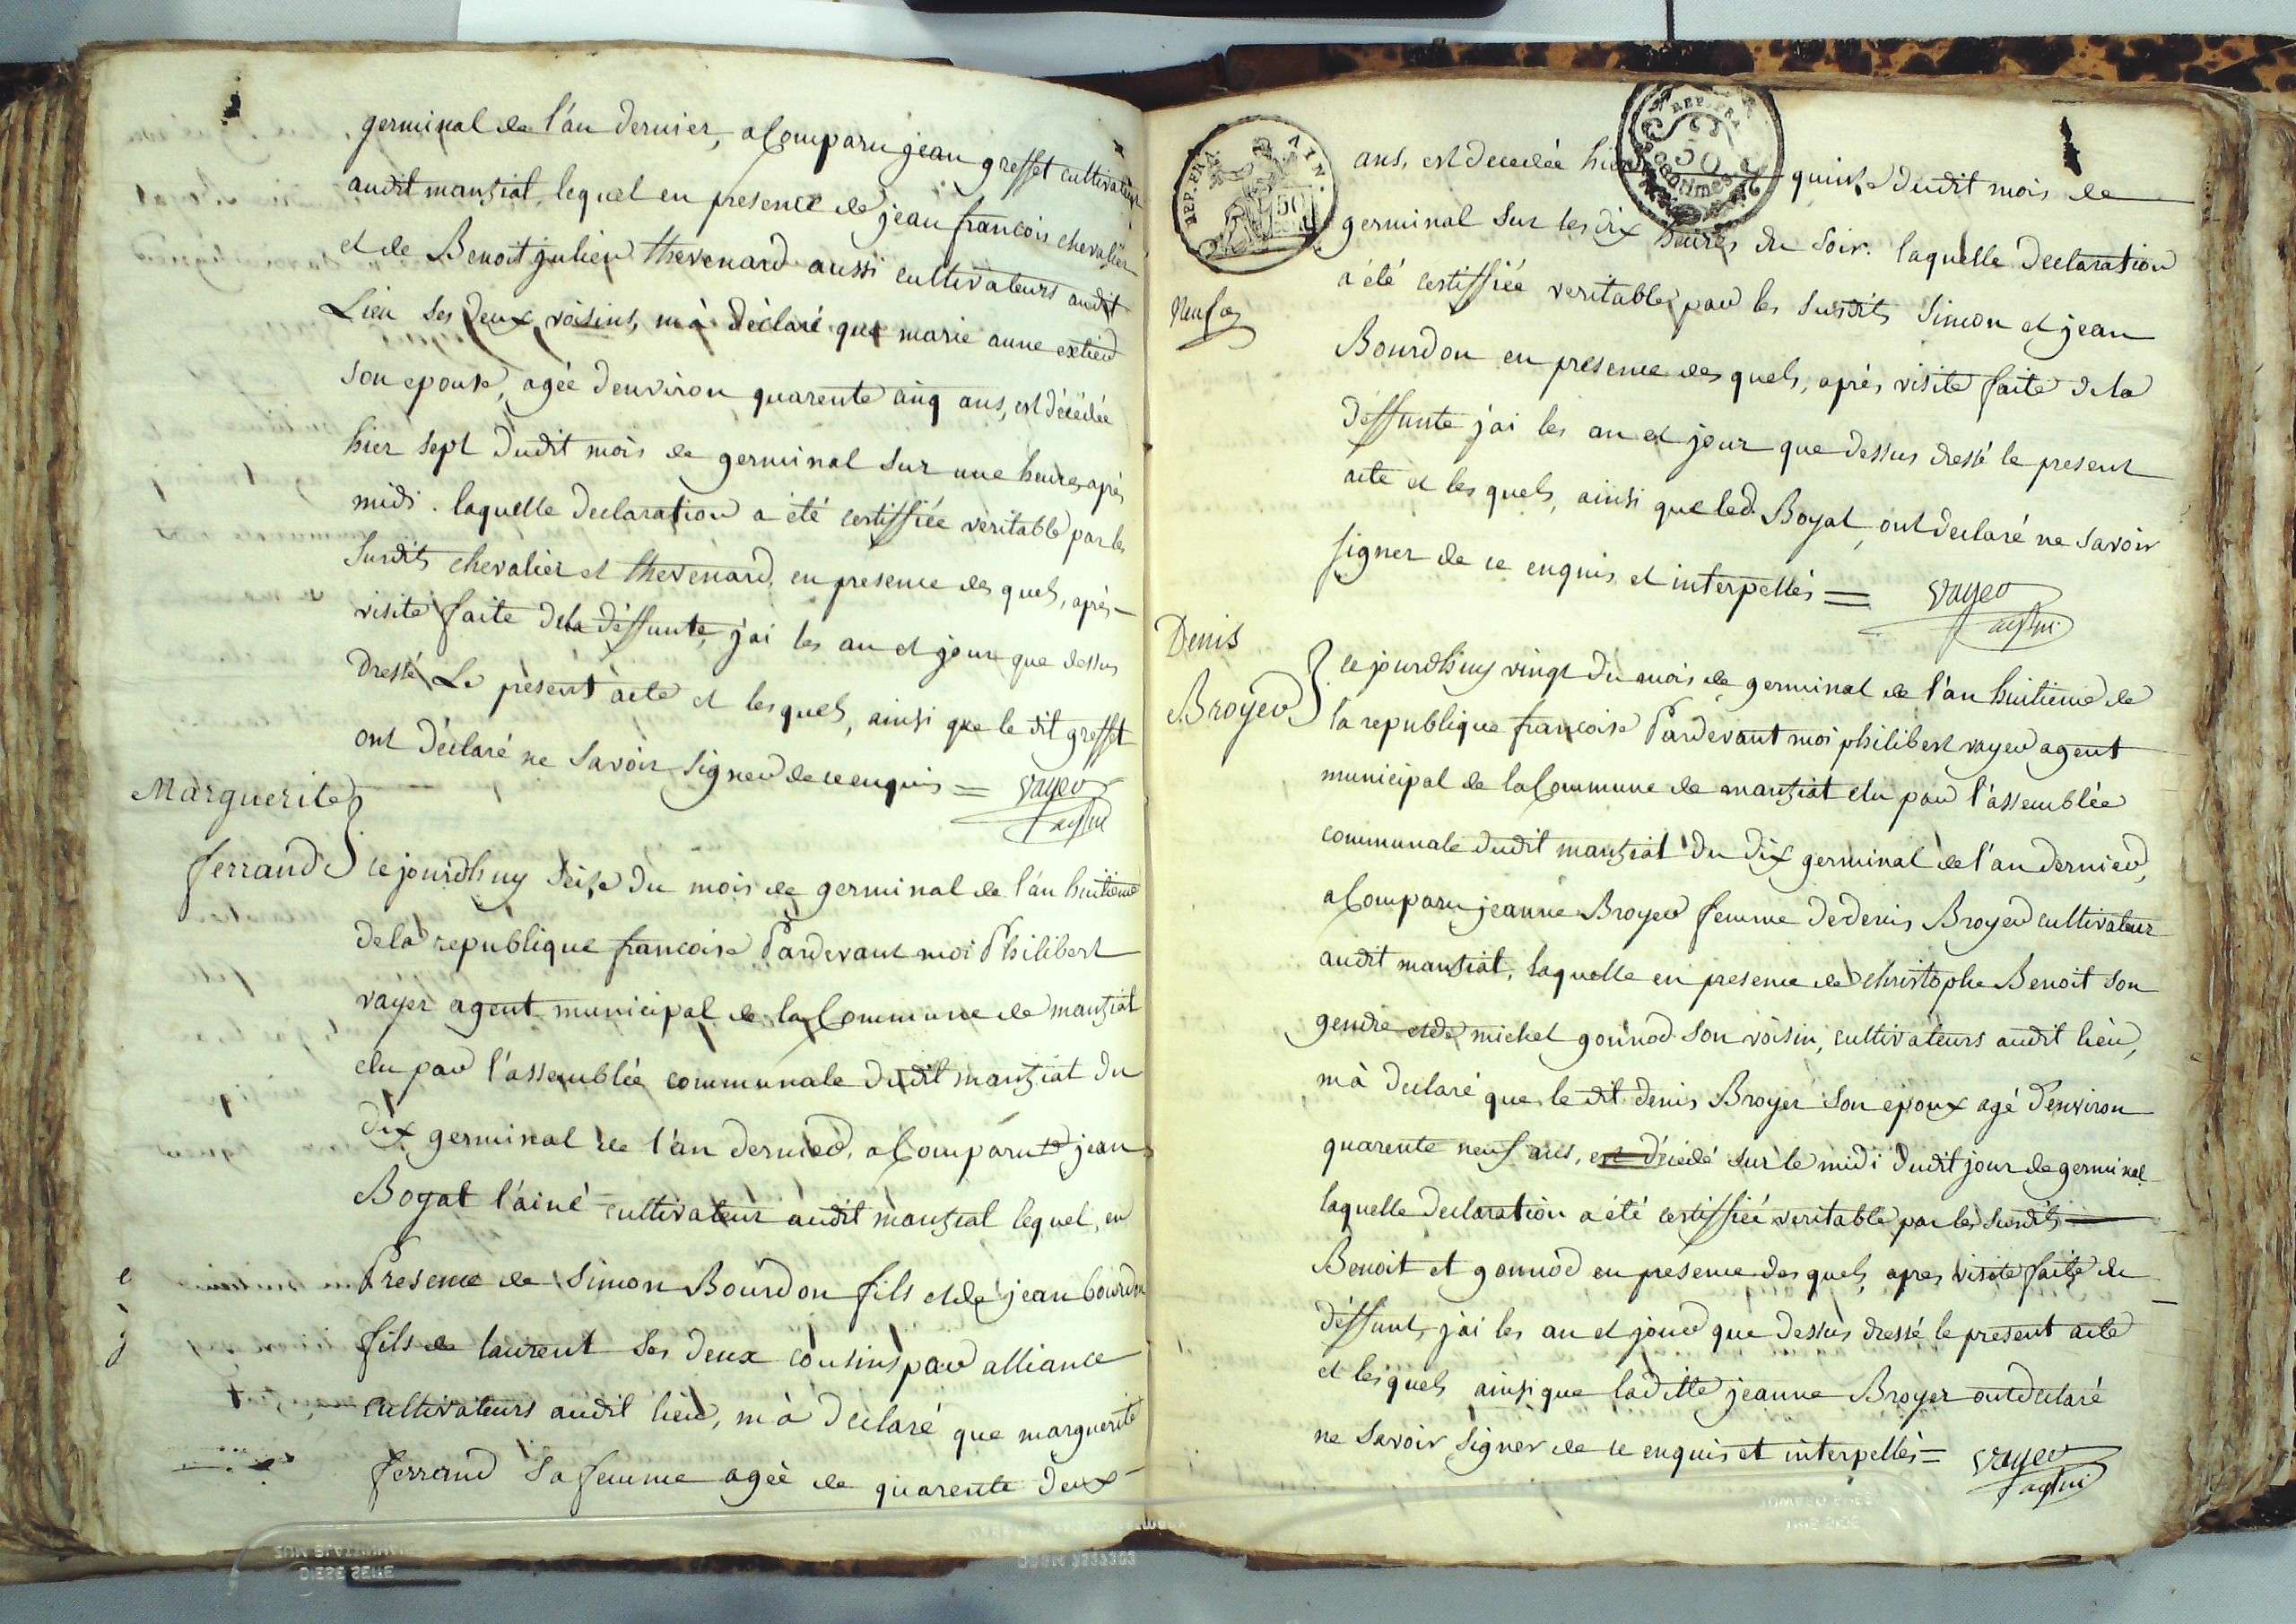 germinal de l'an dernier, a Comparu jean greffet cultivateur
audit manziat, lequel en presence de jean francois chevalier
et de Benoit julien thevenard aussi cultivateurs audit
Lieu ses deux voisins, m'a déclaré que marie anne
son epouse, agée d'environ quarente cinq ans, est décédée
hier sept dudit mois de germinal sur une heure après
midi. laquelle declaration a été certiffiée veritable par les
susdits chevalier et thevenard, en presence des quels, après
visite faite dela déffunte, j'ai les an et jour que dessus
dressé Le présent acte et les quels, ainsi que le dit greffet
ont déclaré ne savoir signer de ce enquis = vayer
agt mni
Marguerite
ferrand
cejourdhuy seize du mois de germinal de l'an huitieme
dela republique francoise Pardevant moi Philibert
vayer agent municipal de la Commune de manziat
elu par l'assemblée communale dudit manziat du
dix germinal de l'an dernier, a Comparu jean
Boyat l'ainé cultivateur audit manziat lequel, en
Presence de Simon Bourdon fils et de jean bourdon
fils de laurent ses deux cousins par alliance
cultivateurs audit lieu, m'a declaré que marguerite
ferrand sa femme agée de quarente deux
REP.FRA. AIN.
50
REP.FRA.
50
centimes
ans, est decedée hier quinze dudit mois de
germinal sur les dix heures du soir. laquelle declaration
a été certiffiée veritable par les susdits Simon et jean
Bourdon en presence des quels, après visite faite dela
déffunte j'ai les an et jour que dessus dressé le present
acte et les quels, ainsi que led. Boyat, ont declaré ne savoir
signer de ce enquis et interpellés = vayer
agt mni
Denis
Broyer
cejourdhuy vingt du mois de germinal de l'an huitieme de
la republique francoise Pardevant moi philibert vayer agent
municipal de la Commune de manziat elu par l'assemblée
communale dudit manziat du dix germinal de l'an dernier,
a Comparu jeanne Broyer femme de denis Broyer cultivateur
audit manziat, laquelle en presence de christophe Benoit son
gendre et de michel gonnod son voisin, cultivateurs audit lieu,
m'a declaré que le dit denis Broyer son epoux agé d'environ
quarente neuf ans, est décédé sur le midi dudit jour de germinal
laquelle declaration a été certiffiée veritable par les susdits
Benoit et gonnod en presence des quels, apres visite faite du
déffunt, j'ai les an et jour que dessus dressé le present acte
et les quels ainsi que laditte jeanne Broyer ont declaré
ne savoir signer de ce enquis et interpellés = vayer
agt mni